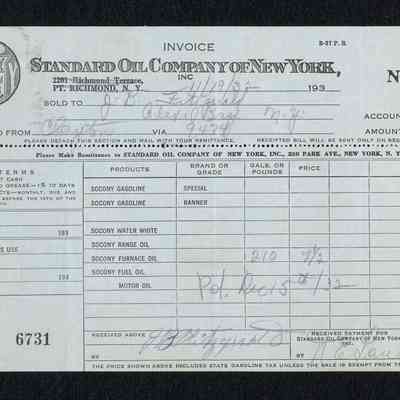 INVOICE
B-37 P. R.
STANDARD OIL COMPANY OF NEW YORK,
INC
2201 Richmond Terrace,
PT. RICHMOND, N. Y.
11/29/32 193
N
SOLD TO J B Fitzgerald
N.Y.
ACCOUN
D FROM VIA AMOUNT
PLEASE DETACH THIS SECTION AND MAIL WITH YOUR REMITTANCE. RECEIPTED BILL WILL BE SENT ONLY ON REQU
Please Make Remittance to STANDARD OIL COMPANY OF NEW YORK, INC., 230 PARK AVE., NEW YORK, N. Y.
TERMS
PRODUCTS BRAND OR GRADE GALS. OR POUNDS PRICE
T CASH
D GREASE—1% 10 DAYS
SOCONY GASOLINE SPECIAL
SOCONY GASOLINE BANNER
193 SOCONY WATER WHITE
SOCONY RANGE OIL
S USE
SOCONY FURNACE OIL 210 7 1/2
SOCONY FUEL OIL
193
MOTOR OIL
Pd. Dec 15th/32
6731
RECEIVED ABOVE J B Fitzgerald
RECEIVED PAYMENT FOR
STANDARD OIL COMPANY OF NEW YORK
INC.
BY
BY
THE PRICE SHOWN ABOVE INCLUDES STATE GASOLINE TAX UNLESS THE SALE IS EXEMPT FROM T